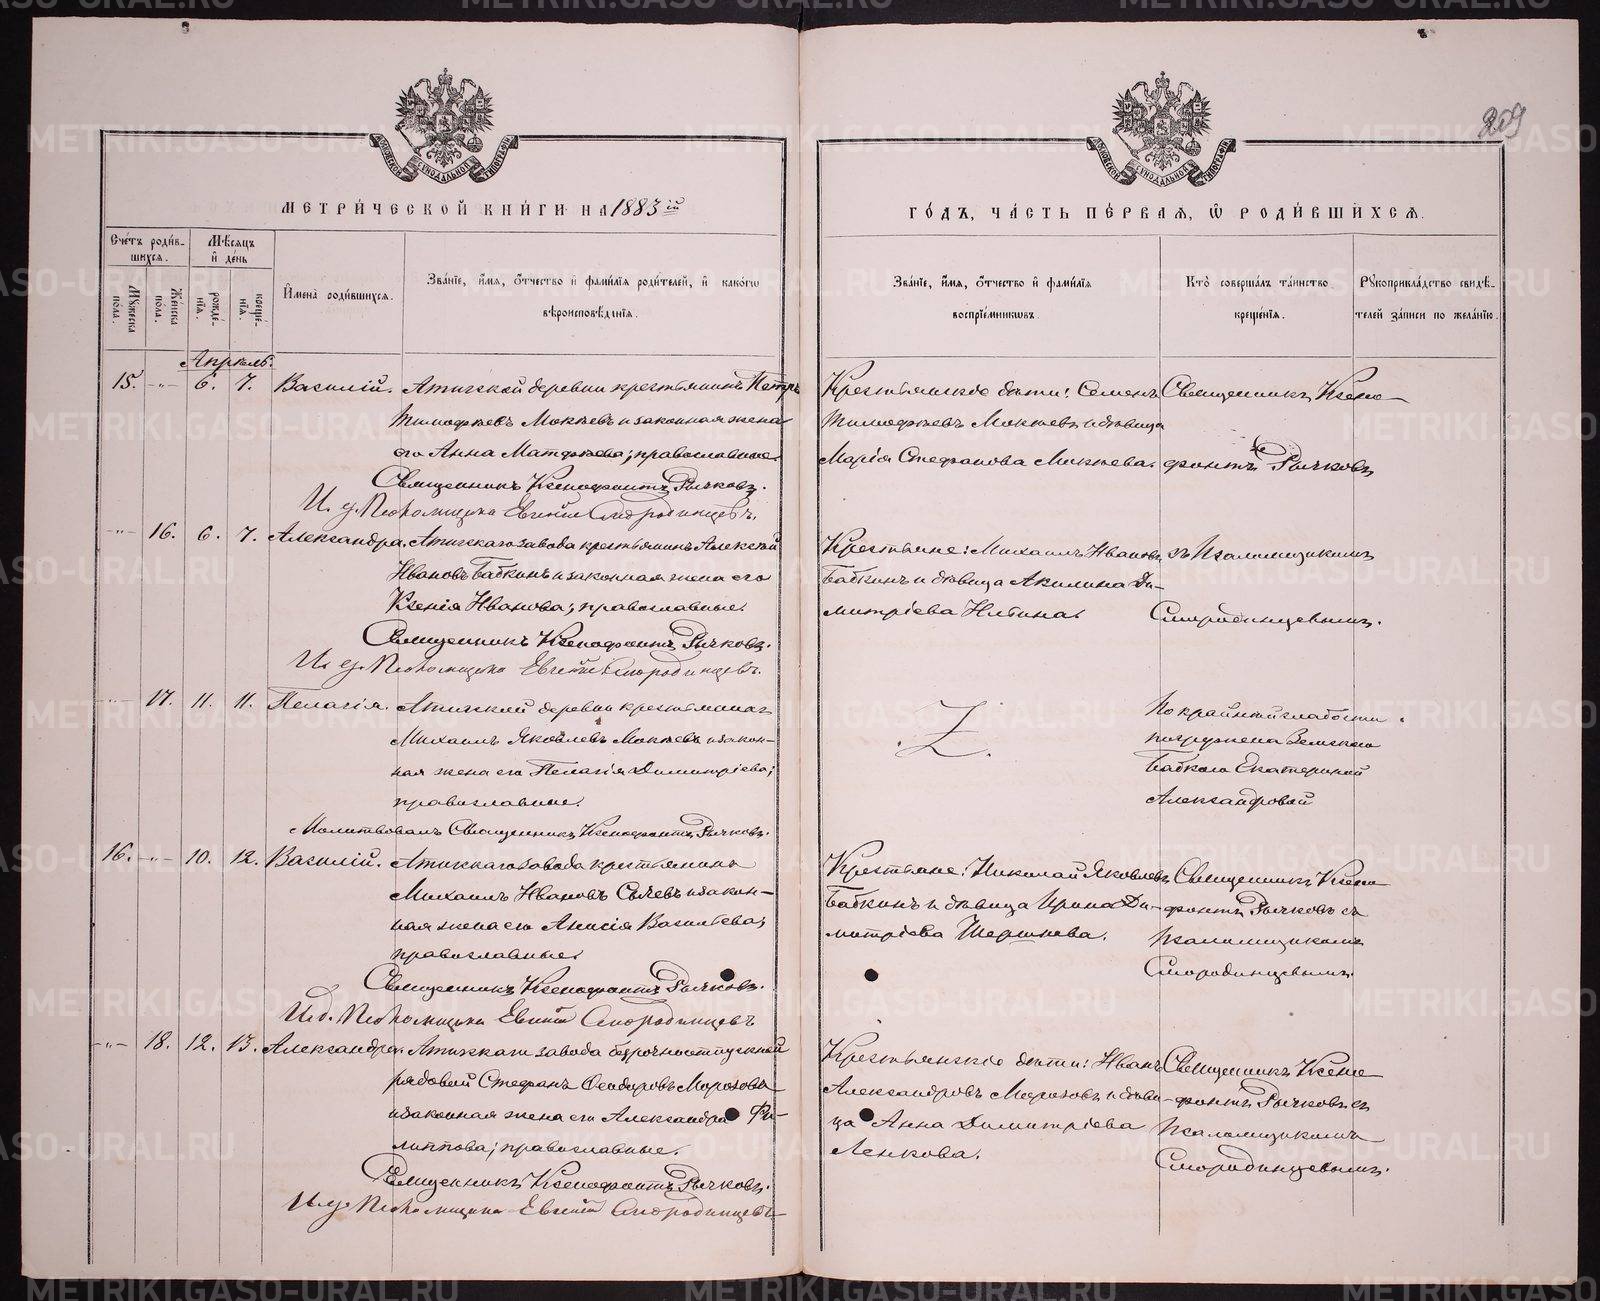 209
МЕТРИ́ЧЕСКОЙ КНИ́ГИ НА 1883 ій
ГО́ДЪ, ЧА́СТЬ ПЕ́РВАЯ, Ѿ РОДИ́ВШИХСЯ.
Сче́тъ роди́в-
шихся.
Мѣ́сяцъ
и҆ де́нь
Мꙋ́жеска по́ла.
Же́нска по́ла.
рожде́-
нїѧ.
креще́-
нїѧ.
И҆мена̀ роди́вшихся.
Зва́нїе, и҆́мя, ѻ҆́тчество и҆ фами́лїѧ роди́телей, и҆ како́гѡ
вѣроисповѣ́данїѧ.
Зва́нїе, и҆́мя, ѻ҆́тчество и҆ фами́лїѧ
воспрїе́мникѡвъ.
Кто̀ соверша́лъ та́инство
креще́нїѧ.
Рꙋкоприкла́дство свидѣ́-
телей за́писи по жела́нїю.
Апрѣль.
15. -„- 6. 7. Василій. Атигской деревни крестьянинъ Петръ
Тимофѣевъ Мокѣевъ и законная жена
его Анна Матфѣева; православные.
Священникъ Ксенофонтъ Рычковъ.
И. д. Псаломщика Евгеній Смородинцевъ.
Крестьянскіе дѣти: Семенъ
Тимофѣевъ Мокѣевъ и дѣвица
Марія Стефанова Микѣева.
Священникъ Ксено-
фонтъ Рычковъ
-„- 16. 6. 7. Александра. Атигскаго завода крестьянинъ Алексѣй
Ивановъ Бабкинъ и законная жена его
Ксенія Иванова; православные.
Священникъ Ксенофонтъ Рычковъ.
И. д. Псаломщика Евгеній Смородинцевъ.
Крестьяне: Михаилъ Ивановъ
Бабкинъ и дѣвица Акилина Ди-
митріева
съ Псаломщикомъ
Смородинцевымъ.
-„- 17. 11. 11. Пелагія. Атигской деревни крестьянинъ
Михаилъ Яковлевъ Мокѣевъ и закон-
ная жена его Пелагія Димитріева;
православные.
Молитвовалъ Священникъ Ксенофонтъ Рычковъ.
Z.
По крайней слабости
погружена Земскою
бабкою Екатериной
Александровой
16. -„- 10. 12. Василій. Атигскаго завода крестьянинъ
Михаилъ Ивановъ Сычевъ и закон-
ная жена его Анисія Васильева;
православные.
Священникъ Ксенофонтъ Рычковъ.
И. д. Псаломщика Евгеній Смородинцевъ
Крестьяне: Николай Яковлевъ
Бабкинъ и дѣвица Ирина Ди-
митріева Шершнева.
Священникъ Ксено-
фонтъ Рычковъ съ
псаломщикомъ
Смородинцевымъ.
-„- 18. 12. 13. Александра. Атигскаго завода безсрочноотпускной
рядовой Стефанъ Ѳеодоровъ Морозовъ
и законная жена его Александра Фи-
липпова; православные.
Священникъ Ксенофонтъ Рычковъ.
И. д. Псаломщика Евгеній Смородинцевъ
Крестьянскіе дѣти: Иванъ
Александровъ Морозовъ и дѣви-
ца Анна Димитріева
Ленкова.
Священникъ Ксено-
фонтъ Рычковъ съ
псаломщикомъ
Смородинцевымъ.
METRIKI.GASO-URAL.RU